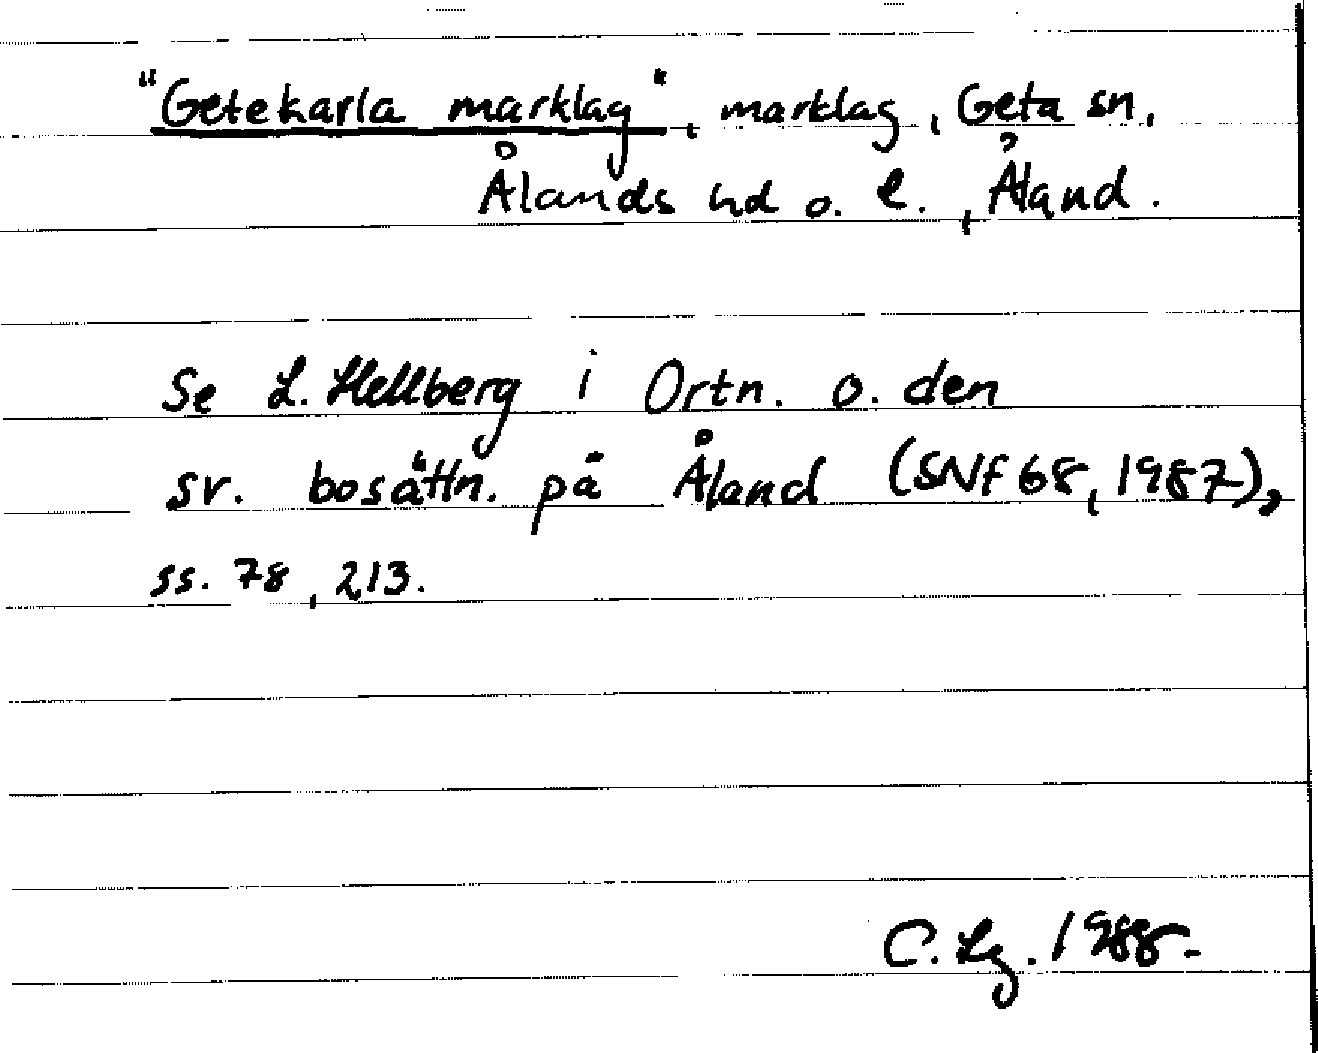 "Getekarla marklag", marklag, Geta sn,
Ålands hd o. l., Åland.
Se L. Hellberg i Ortn. o. den
sv. bosättn. på Åland (SNF 68, 1987),
ss. 78, 213.
C. Lg. 1988.